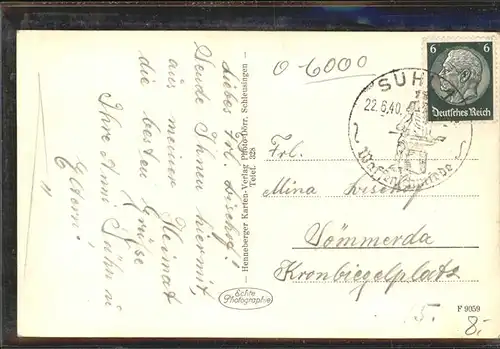 Liebes Frl. Bischof!
Sende Ihnen hiermit,
aus meiner Heimat
die besten Grüße
Ihre Anni Sühn u
Eltern!
Henneberger Karten-Verlag Photo-Dörr, Schleusingen -
Telef. 328
Echte
Photographie
0 6000
SUHL
22.6.40.
Waffenschmiede
6 6
Deutsches Reich
Frl.
Mina Bischof
Sömmerda
Kronbiegelplatz
5.
F 9059
8.-